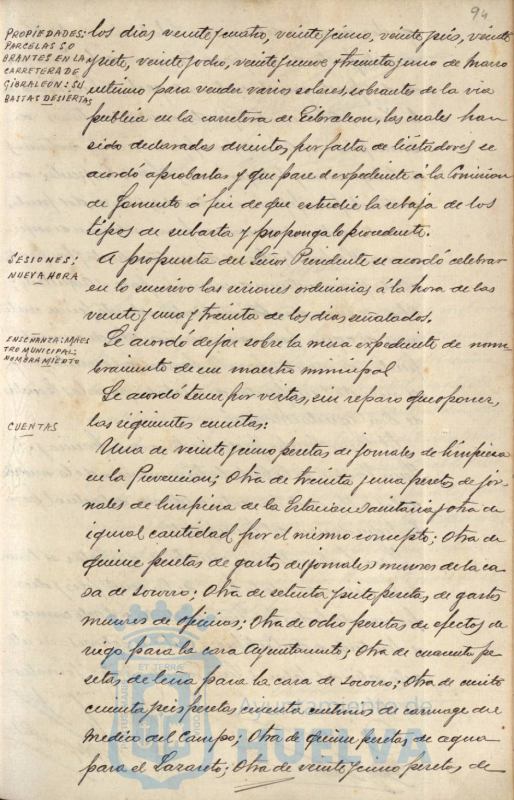 94
PROPIEDADES:
PARCELAS SO
BRANTES EN LA
CARRETERA DE
GIBRALEON: SU
BASTAS DESIERTAS
los dias veinte y cuatro, veinte y cinco, veinte y seis, veinte
y siete, veinte y ocho, veinte y nueve y treinta y uno de Marzo
ultimo para vender varios solares, sobrantes de la via
publica en la carretera de Gibraleon, las cuales han
sido declaradas desiertas por falta de licitadores se
acordó aprobarlas y que pase el expediente á la Comision
de Fomento á fin de que estudie la rebaja de los
tipos de subasta y proponga lo procedente.
SESIONES:
NUEVA HORA
A propuesta del Señor Presidente se acordó celebrar
en lo sucesivo las sesiones ordinarias á la hora de las
veinte y una y treinta de los dias señalados.
ENSEÑANZA: MAES
TRO MUNICIPAL:
NOMBRAMIENTO
Se acordó dejar sobre la mesa expediente de nom
bramiento de un maestro municipal
CUENTAS
Se acordó tener por vistas, sin reparo que oponer,
las siguientes cuentas:
Una de veinte y cinco pesetas de jornales de limpieza
en la Prevencion; Otra de treinta y una pesetas de jor
nales de limpieza de la Estacion Sanitaria y otra de
igual cantidad por el mismo concepto; Otra de
quince pesetas de gastos de jornales menores de la ca
sa de socorro; Otra de setenta y siete pesetas de gastos
menores de oficinas; Otra de ocho pesetas de efectos de
riego para la casa Ayuntamiento; Otra de cuarenta pe
setas de leña para la casa de socorro; Otra de ciento
cincuenta y seis pesetas cincuenta centimos de carruage del
Medico del Campo; Otra de quince pesetas de agua
para el Lazareto; Otra de veinte y cinco pesetas de
Ayuntamiento de
HUELVA